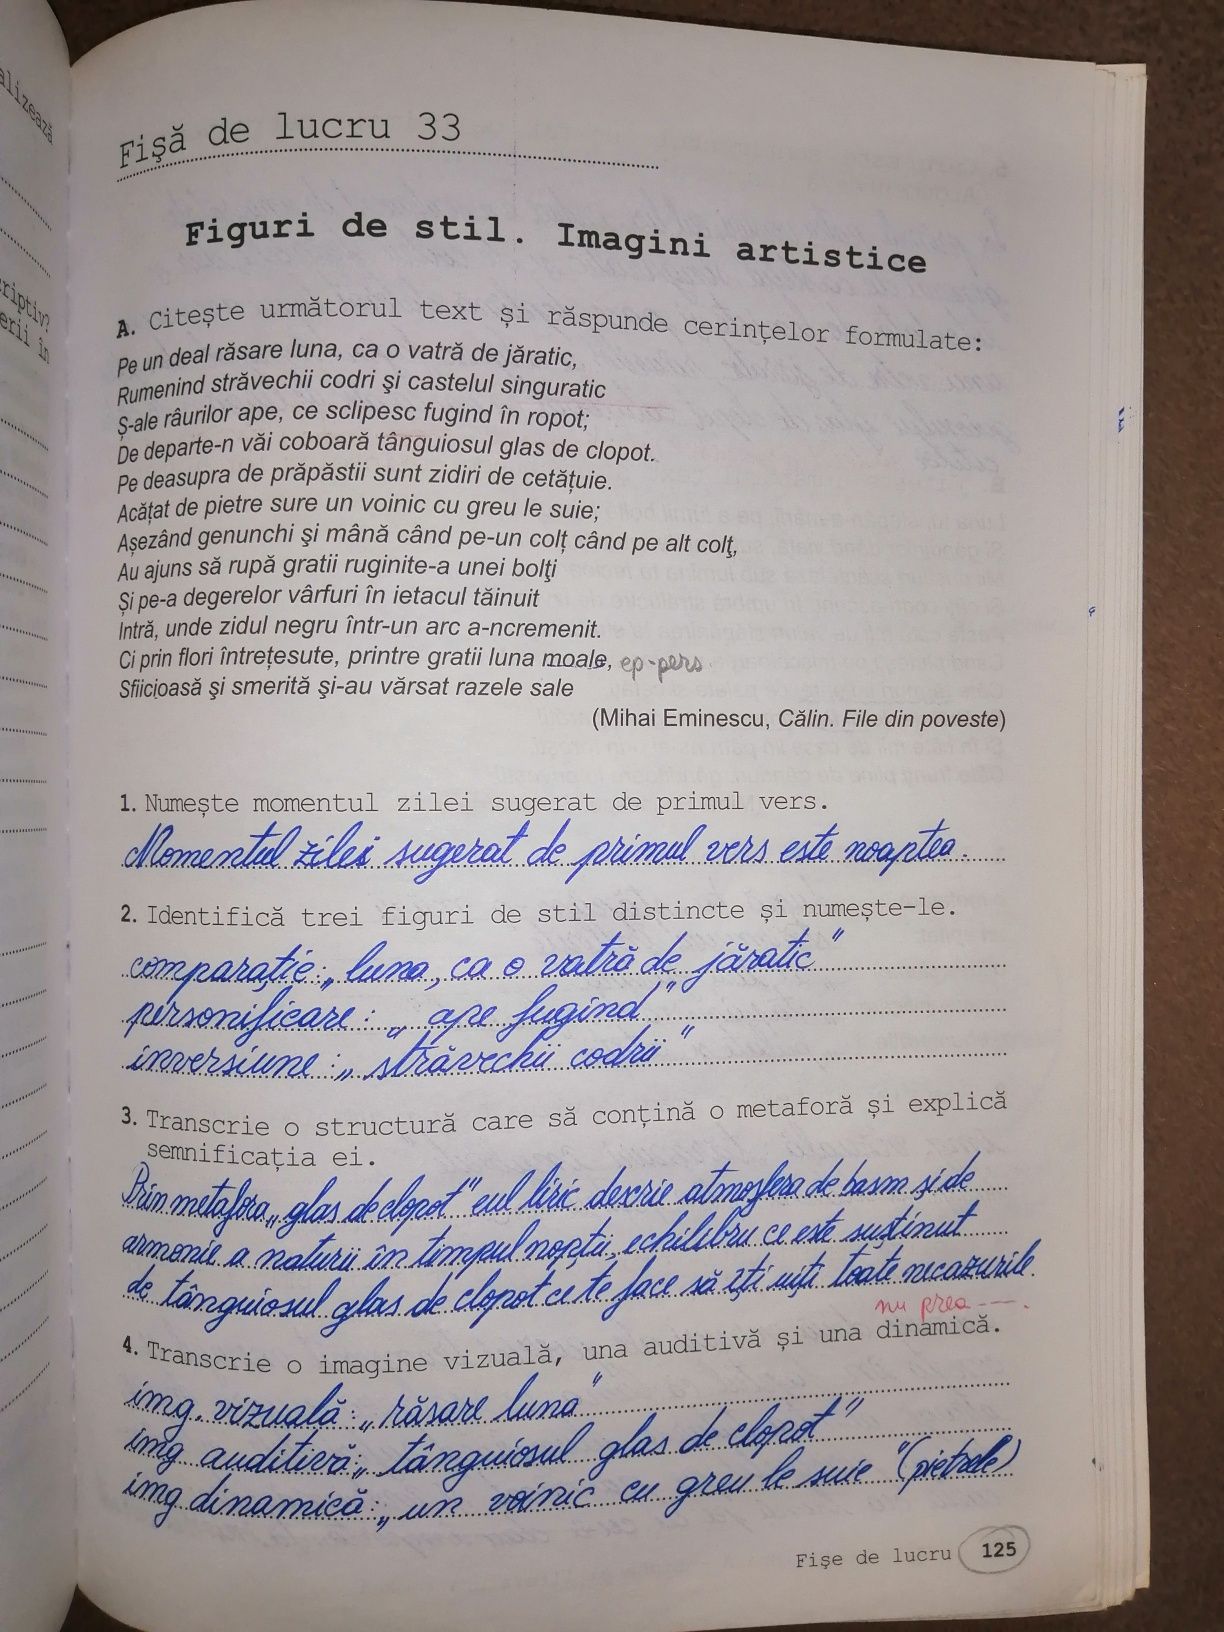 alizează
criptiv?
erii în
Fişă de lucru 33
Figuri de stil. Imagini artistice
A. Citește următorul text și răspunde cerințelor formulate:
Pe un deal răsare luna, ca o vatră de jăratic,
Rumenind străvechii codri şi castelul singuratic
Ș-ale râurilor ape, ce sclipesc fugind în ropot;
De departe-n văi coboară tânguiosul glas de clopot.
Pe deasupra de prăpăstii sunt zidiri de cetățuie.
Acățat de pietre sure un voinic cu greu le suie;
Așezând genunchi şi mână când pe-un colț când pe alt colţ,
Au ajuns să rupă gratii ruginite-a unei bolţi
Și pe-a degerelor vârfuri în ietacul tăinuit
Intră, unde zidul negru într-un arc a-ncremenit.
Ci prin flori întrețesute, printre gratii luna moale, ep-pers
Sfiicioasă şi smerită şi-au vărsat razele sale
(Mihai Eminescu, Călin. File din poveste)
1. Numește momentul zilei sugerat de primul vers.
Momentul zilei sugerat de primul vers este noaptea.
2. Identifică trei figuri de stil distincte și numește-le.
comparație: „luna, ca o vatră de jăratic"
personificare: „ape fugind"
inversiune: „străvechii codrii"
3. Transcrie o structură care să conțină o metaforă și explică
semnificația ei.
Prin metafora „glas de clopot" eul liric descrie atmosfera de basm și de
armonie a naturii în timpul nopții, echilibru ce este susținut
de tânguiosul glas de clopot ce te face să îți uiți toate necazurile.
nu prea ---.
4. Transcrie o imagine vizuală, una auditivă și una dinamică.
img. vizuală: „răsare luna"
img auditivă: „tânguiosul glas de clopot"
img dinamică: „un voinic cu greu le suie" (pietrele)
Fişe de lucru 125